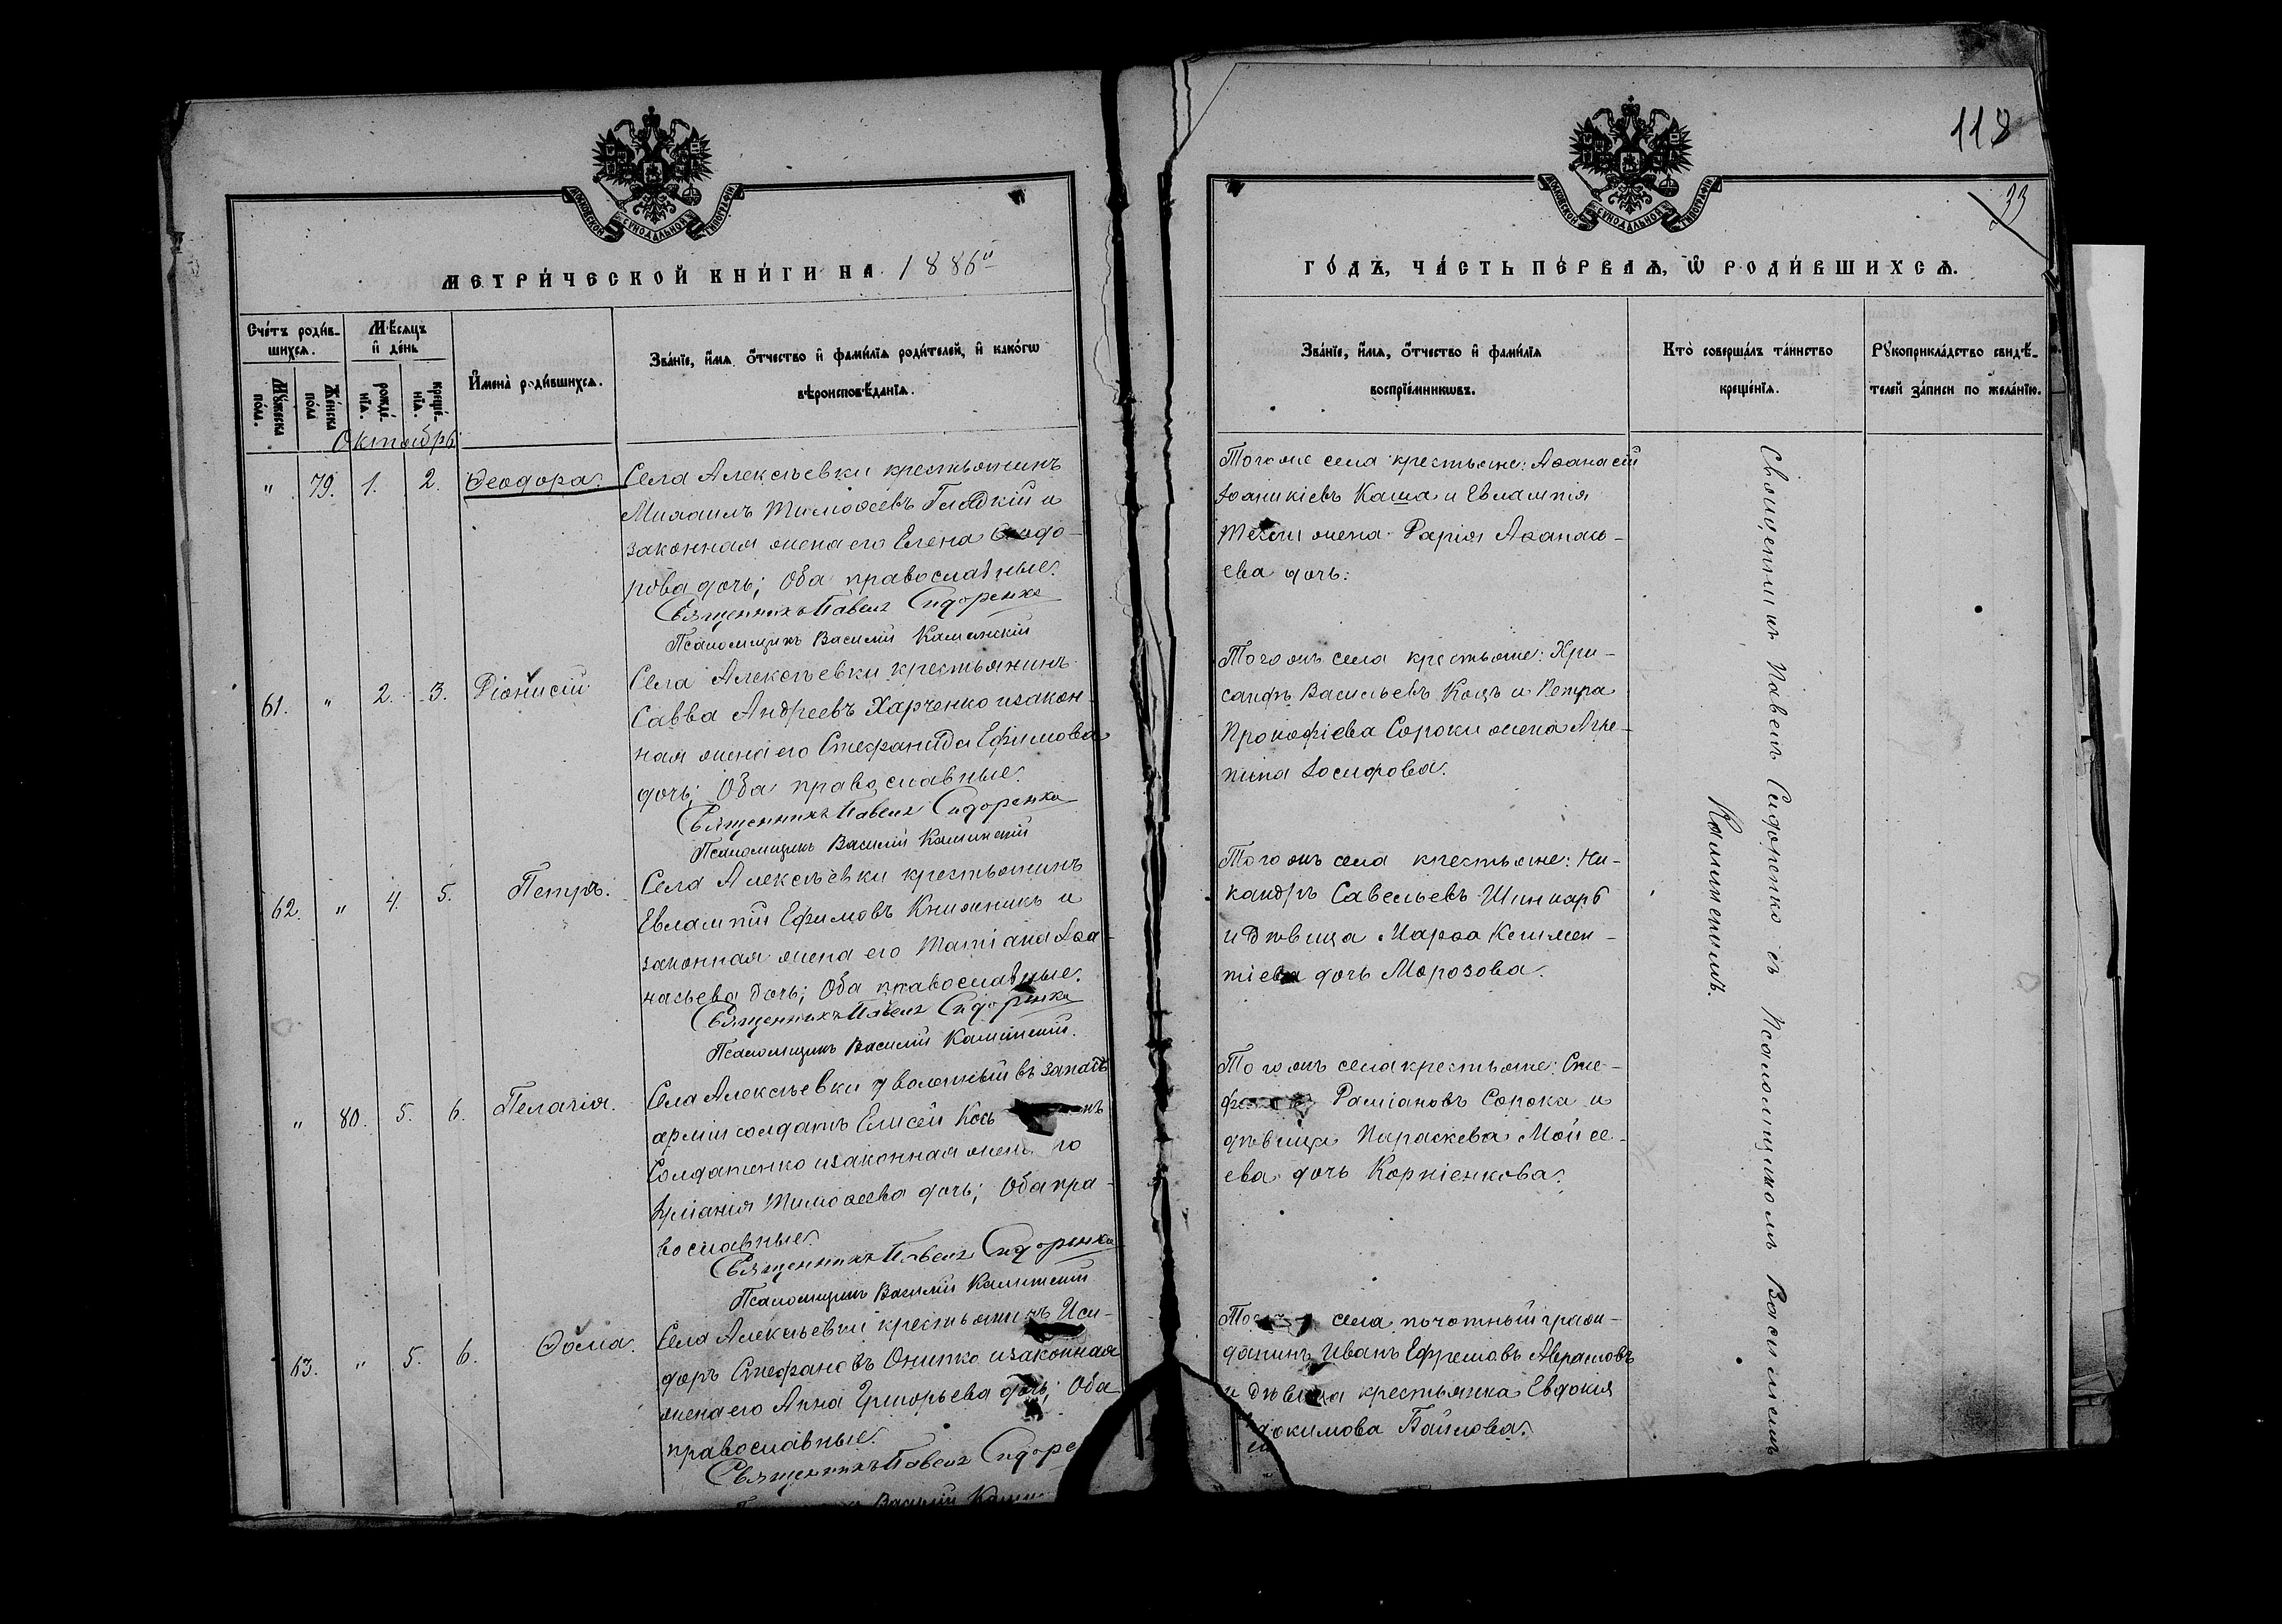 118
33
МОСКОВСКОЙ СѴНОДАЛЬНОЙ ТИПОГРАФІИ
МОСКОВСКОЙ СѴНОДАЛЬНОЙ ТИПОГРАФІИ
МЕТРИ́ЧЕСКОЙ КНИ́ГИ НА 1886й
ГО́ДЪ, ЧА́СТЬ ПЕ́РВАѦ, Ѡ РОДИ́ВШИХСѦ.
Сче́тъ роди́в-
шихсѧ.
Мѣ́сѧцъ
и҆ де́нь
Мꙋ́жеска
по́ла.
Же́нска
по́ла
рожде́-
нїѧ.
креще́-
нїѧ.
И҆мена̀ роди́вшихсѧ.
Зва́нїе, и҆́мѧ ѻ҆́тчество и҆ фами́лїѧ роди́телей, и҆ како́гѡ
вѣроисповѣ́данїѧ.
Зва́нїе, и҆́мѧ, ѻ҆́тчество и҆ фами́лїѧ
воспрїе́мникѡвъ.
Кто̀ соверша́лъ та́инство
креще́нїѧ.
Рꙋкоприкла́дство свидѣ́-
телей за́писи по жела́нїю.
Октябрь
" 79. 1. 2. Ѳеодора.
Села Алексѣевки крестьянинъ
Михаилъ Тимоѳеевъ Гладкій и
законная жена его Елена Ѳеодо-
рова дочь; Оба православные.
Священникъ Павелъ Сидоренко
Псаломщикъ Василій Калинскій
Того же села крестьяне: Аѳанасій
Іоаникіевъ Каша и Евлампія
жена Дарія Аѳанась-
ева дочь.
61. " 2. 3. Діонисій
Села Алексѣевки крестьянинъ
Савва Андреевъ Харченко и закон
ная жена его Стефанида Ефимова
дочь; Оба православные.
Священникъ Павелъ Сидоренко
Псаломщикъ Василій Калинскій
Того жъ села крестьяне: Хри-
санфъ Васильевъ Коцъ и Петра
Прокофіева Сороки жена Агре-
пина Іосифова.
62. " 4. 5. Петръ.
Села Алексѣевки крестьянинъ
Евлампій Ефимовъ Книжникъ и
законная жена его Татіана Аѳа-
насьева дочь; Оба православные.
Священникъ Павелъ Сидоренко
Псаломщикъ Василій Калинскій.
Того жъ села крестьяне: Ни-
кандръ Савельевъ Шинкарь
и дѣвица Марѳа Климен-
тіева дочь Морозова.
" 80. 5. 6. Пелагія.
Села Алексѣевки уволенный въ запасъ
арміи солдатъ Елисей
Солдатенко и законная жена его
Іуліанія Тимоѳеева дочь; Оба пра-
вославные.
Священникъ Павелъ Сидоренко
Псаломщикъ Василій Калинскій
Того жъ села крестьяне: Сте-
Даміановъ Сорока и
дѣвица Параскева Мойсе-
ева дочь Корніенкова.
63. " 5. 6. Ѳома.
Села Алексѣевки крестьянинъ Иси-
доръ Стефановъ Онипко и законная
жена его Анна Григорьева дочь; Оба
православные.
Священникъ Павелъ Сидоре
Василій
села почотный граж-
данинъ Иванъ Ефремовъ Аврамовъ
и дѣвица крестьянка Евдокія
докимова
Священникъ Павелъ Сидоренко съ Псаломщикомъ Василіемъ
Калинскимъ.